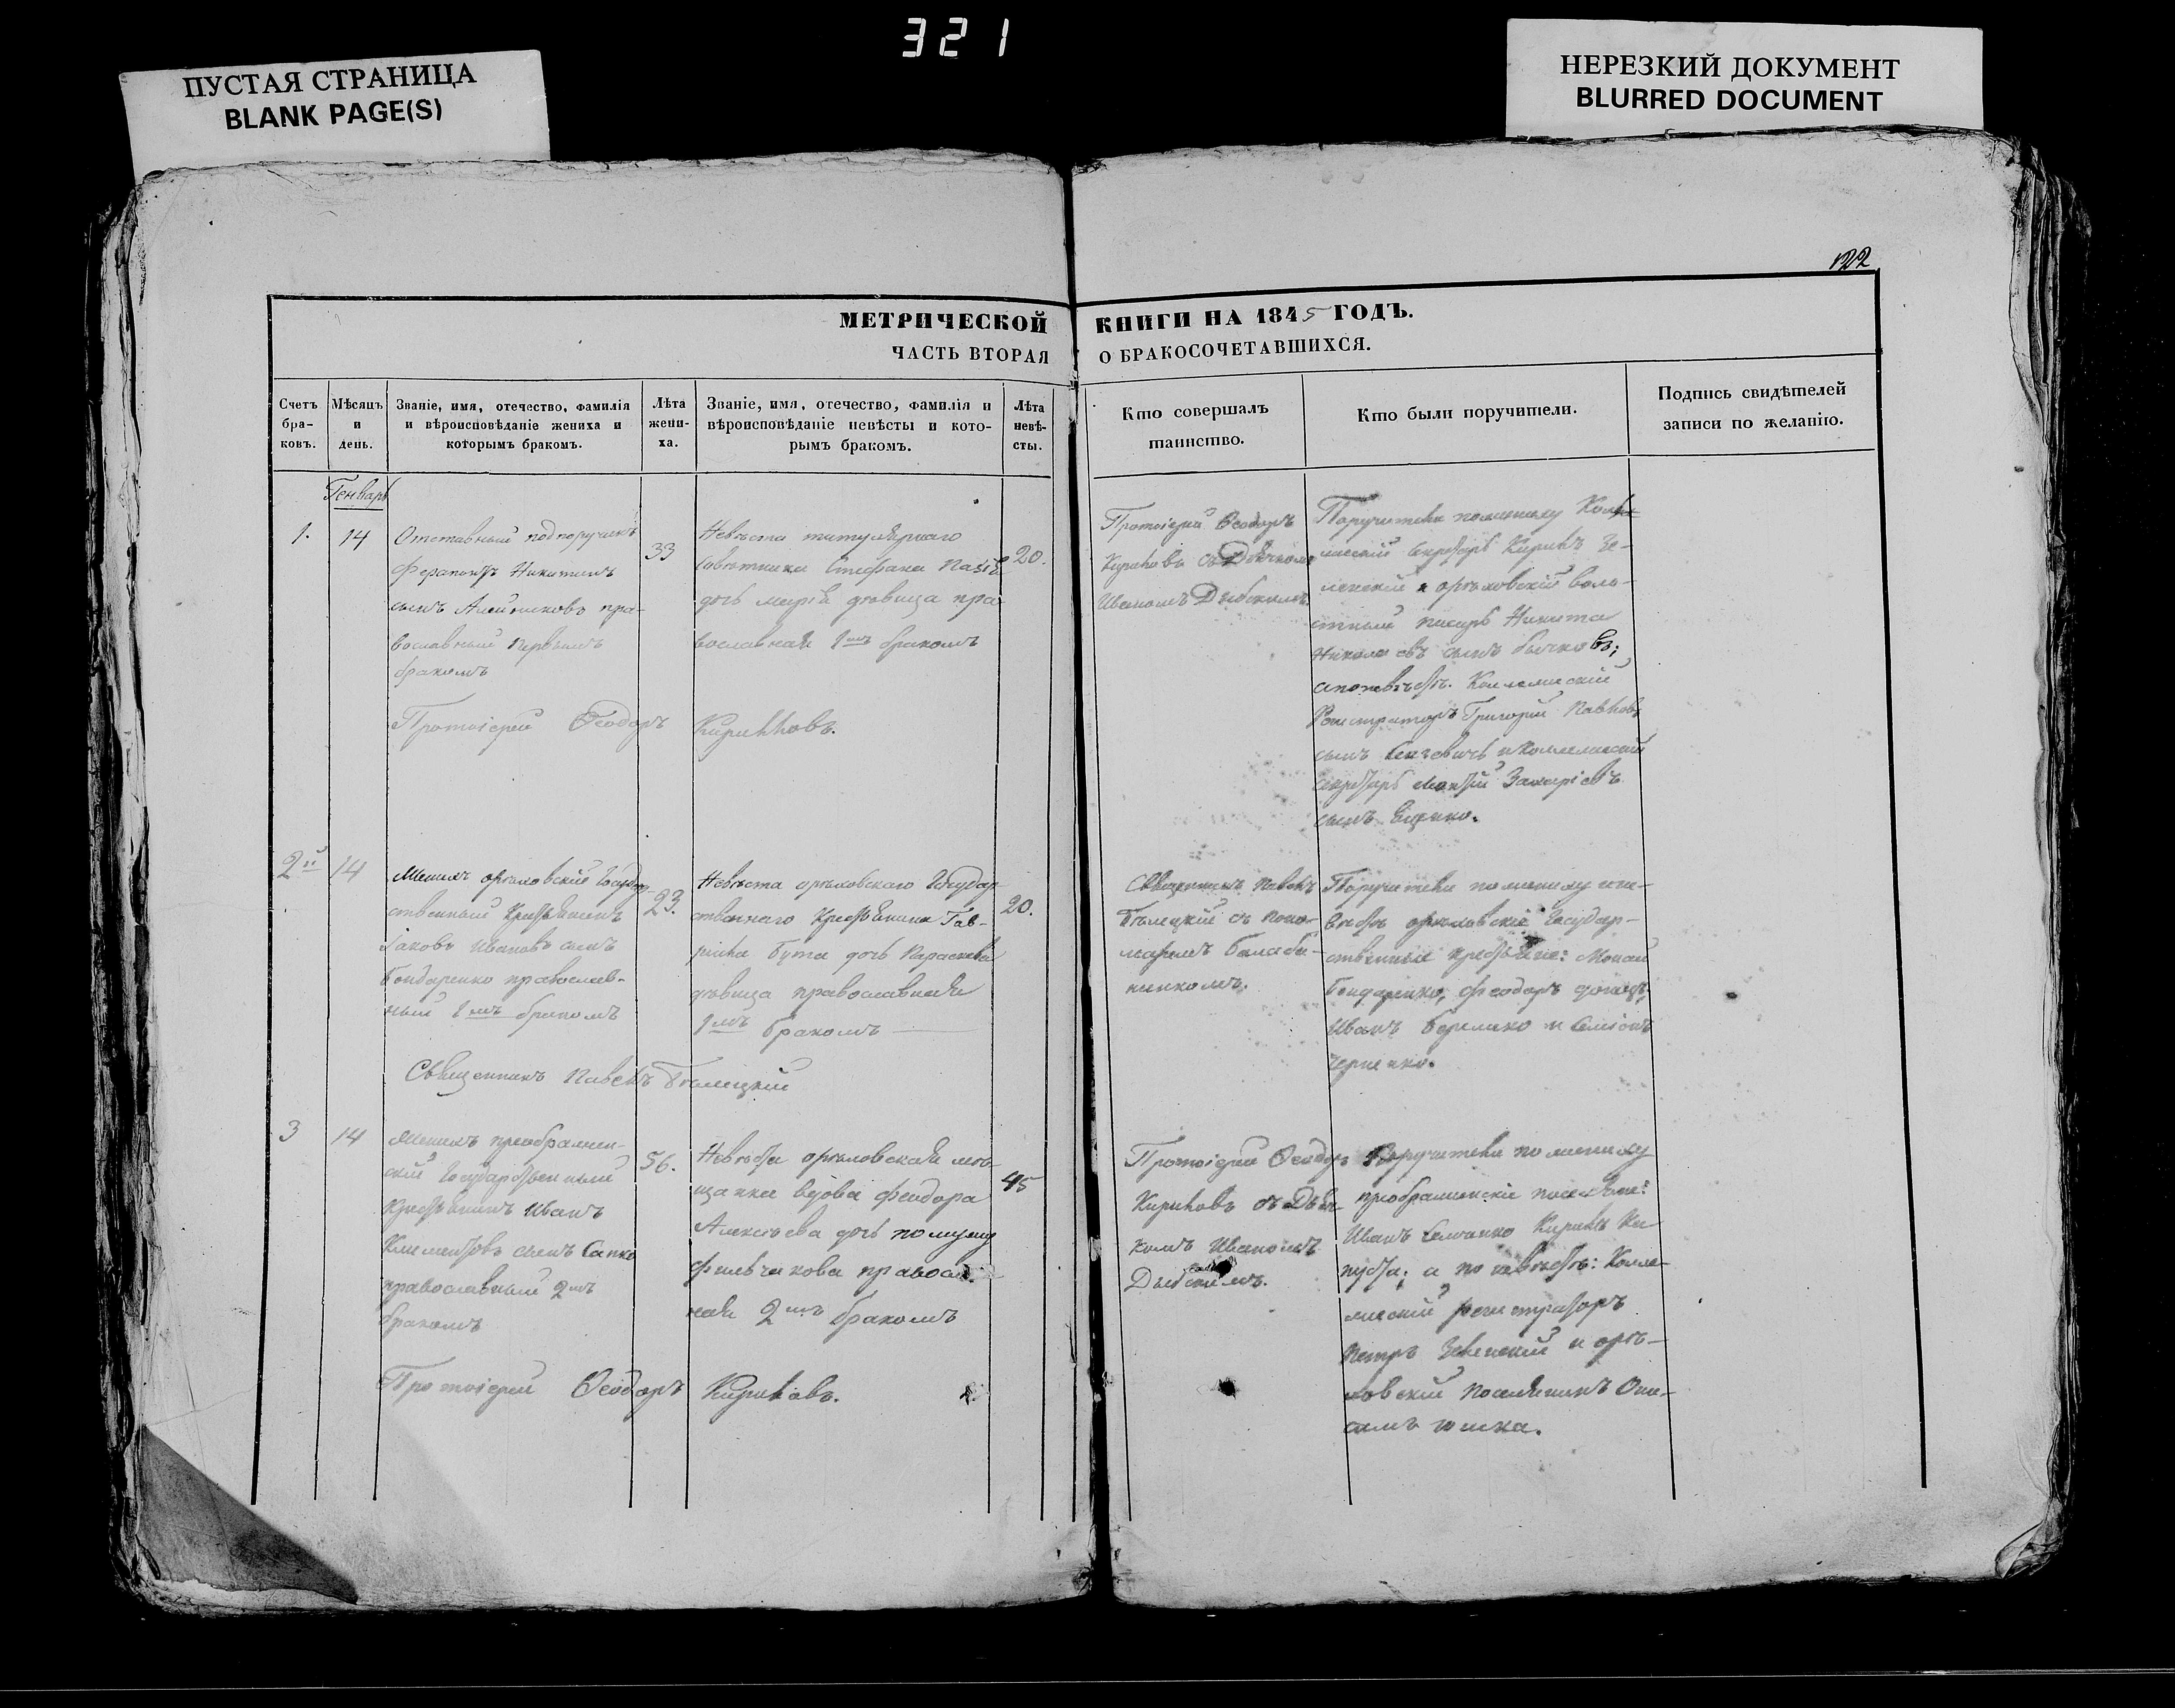 321
ПУСТАЯ СТРАНИЦА
BLANK PAGE(S)
НЕРЕЗКИЙ ДОКУМЕНТ
BLURRED DOCUMENT
122
МЕТРИЧЕСКОЙ КНИГИ НА 1845 ГОДЪ.
ЧАСТЬ ВТОРАЯ О БРАКОСОЧЕТАВШИХСЯ.
Счетъ
бра-
ковъ.
Мѣсяцъ
и
день.
Званіе, имя, отечество, фамилія
и вѣроисповѣданіе жениха и
которымъ бракомъ.
Лѣта
жени-
ха.
Званіе, имя, отечество, фамилія и
вѣроисповѣданіе невѣсты и кото-
рымъ бракомъ.
Лѣта
невѣ-
сты.
Кто совершалъ
таинство.
Кто были поручители.
Подпись свидѣтелей
записи по желанію.
Генварь
1.
14
Отставный подпоручикъ
Ферапонтъ Никитинъ
сынъ пра-
вославный первымъ
бракомъ
33
Невѣста титулярнаго
Совѣтника Стефана
дочь Марія дѣвица пра-
вославная 1мъ бракомъ
20.
Протоіерей Ѳеодоръ
Кириловъ съ Дьячкомъ
Иваномъ
Поручители по жениху Колле-
жскій Секретарь Кирилъ
и орѣховскій воло-
стный писарь Никита
Николаевъ сынъ Бычковъ;
а по невѣстѣ. Коллежскій
Регистраторъ Григорій Павловъ
сынъ и Коллежскій
Секретарь Захаріевъ
сынъ
Протоіерей Ѳеодоръ Кириловъ.
2й
14
Женихъ орѣховскій Государ-
ственный Крестьянинъ
Іаковъ Ивановъ сынъ
Бондаренко православ-
ный 1мъ бракомъ
23.
Невѣста орѣховскаго Государ-
ственнаго Крестьянина Гав-
ріила Бута дочь Параскева
дѣвица православная
1мъ бракомъ
20.
Священникъ Павелъ
Бѣлецкій съ поно-
маремъ Балаба-
ненкомъ.
Поручители по жениху и не-
вѣстѣ орѣховскіе Государ-
ственные крестьяне:
Бондаренко, Феодоръ
Иванъ и Симеонъ
Черненко.
Священникъ Павелъ Бѣлецкій
3
14
Женихъ преображен-
скій Государственный
Крестьянинъ Иванъ
Климентовъ сынъ Сапко
православный 2мъ
бракомъ
56.
Невѣста орѣховская мѣ-
щанка вдова Феодора
Алексѣева дочь по мужу
Фильчакова правосл.
ная 2мъ бракомъ
45
Протоіерей Ѳеодоръ
Кириловъ съ Дьяч-
комъ Иваномъ
Поручители по жениху
преображенскіе поселяне:
Иванъ Кирилъ Ка
пуста; а по невѣстѣ: Колле-
жскій регистраторъ
Петръ и орѣ-
ховскій поселянинъ
Протоіерей Ѳеодоръ Кириловъ.